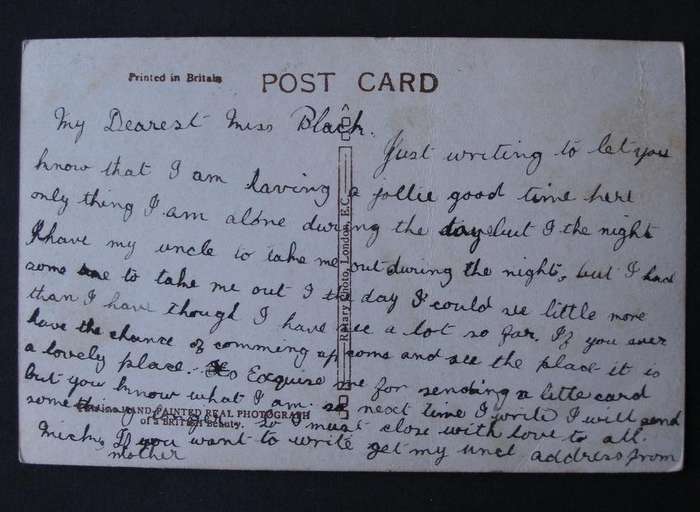 Printed in Britain
POST CARD
My Dearest Miss Black.
Just writing to let you
know that I am having a jollie good time here
only thing I am alone during the day but I the night
I have my uncle to take me out during the nights, but I had
some one to take me out I the day I could se little more
than I have though I have see a lot so far. If you ever
have the chance of comming up come and see the place it is
a lovely place. So Exquise me for sending a lette card
but you know what I am. so next time I write I will send
something So I must close with love to all.
If you want to write get my uncl address from
mother
Rotary Photo, London, E.C.
HAND-PAINTED REAL PHOTOGRAPH
of a BRITISH Beauty.